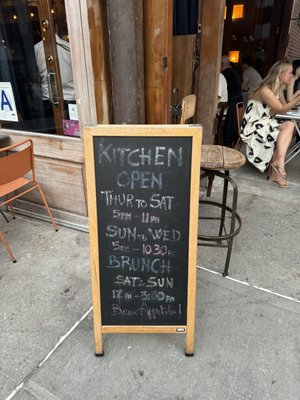 KITCHEN
OPEN
THUR TO SAT
5PM - 11PM
SUN TO WED
5PM - 10.30PM
BRUNCH
SAT & SUN
12PM - 3:00PM
Buon Appetito!
A